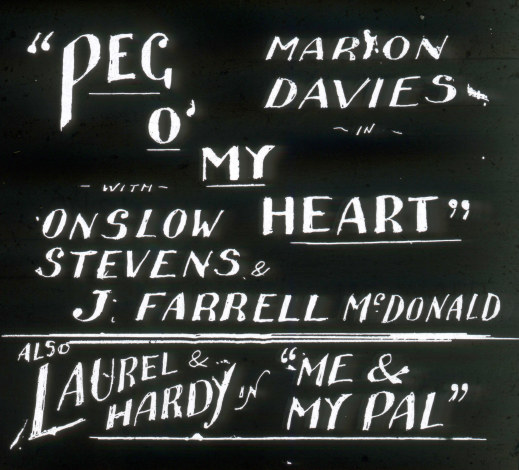 MARION
DAVIES
~ IN ~
"PEG
O'
MY
HEART"
~ WITH ~
ONSLOW
STEVENS &
J. FARRELL McDONALD
ALSO
LAUREL &
HARDY IN
"ME &
MY PAL"